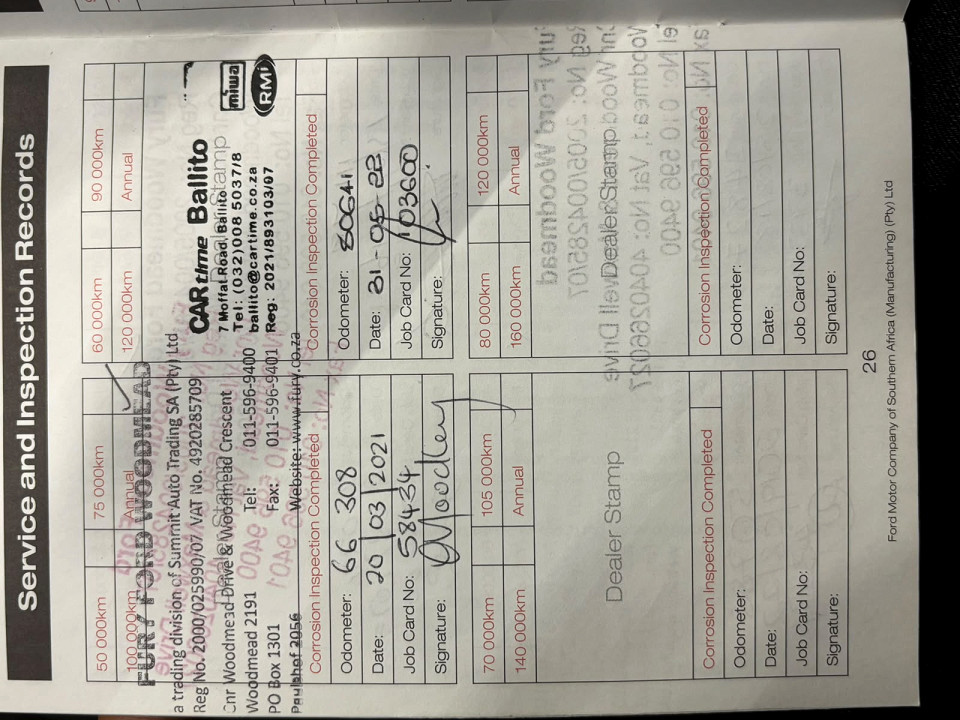 Service and Inspection Records
50 000km 75 000km
100 000km Annual
FURY FORD WOODMEAD
a trading division of Summit Auto Trading SA (Pty) Ltd
Reg No. 2000/025990/07 VAT No. 4920285709
Dealer Stamp
Cnr Woodmead Drive & Woodmead Crescent
Woodmead 2191 Tel: 011-596-9400
PO Box 1301 Fax: 011-596-9401
Paulshof 2056 Website: www.fury.co.za
Corrosion Inspection Completed
Odometer: 66 308
Date: 20/03/2021
Job Card No: 58434
Signature:
60 000km 90 000km
120 000km Annual
CARtime Ballito
Dealer Stamp
7 Moffal Road, Ballito
Tel: (032) 008 5037/8
ballito@cartime.co.za
Reg: 2021/893103/07
miwa
RMI
Corrosion Inspection Completed
Odometer: 80641
Date: 31-05-22
Job Card No: 103600
Signature:
70 000km 105 000km
140 000km Annual
Dealer Stamp
Corrosion Inspection Completed
Odometer:
Date:
Job Card No:
Signature:
80 000km 120 000km
160 000km Annual
Dealer Stamp
Corrosion Inspection Completed
Odometer:
Date:
Job Card No:
Signature:
26
Ford Motor Company of Southern Africa (Manufacturing) (Pty) Ltd